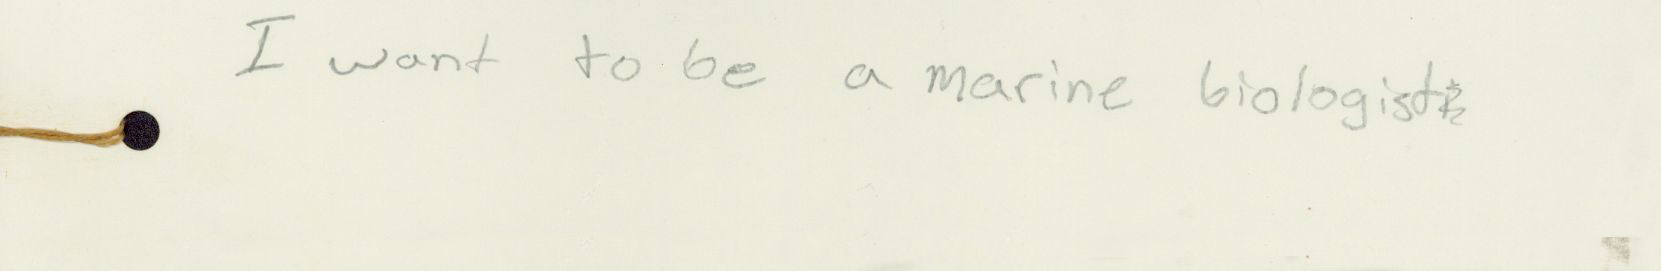 I want to be a marine biologist